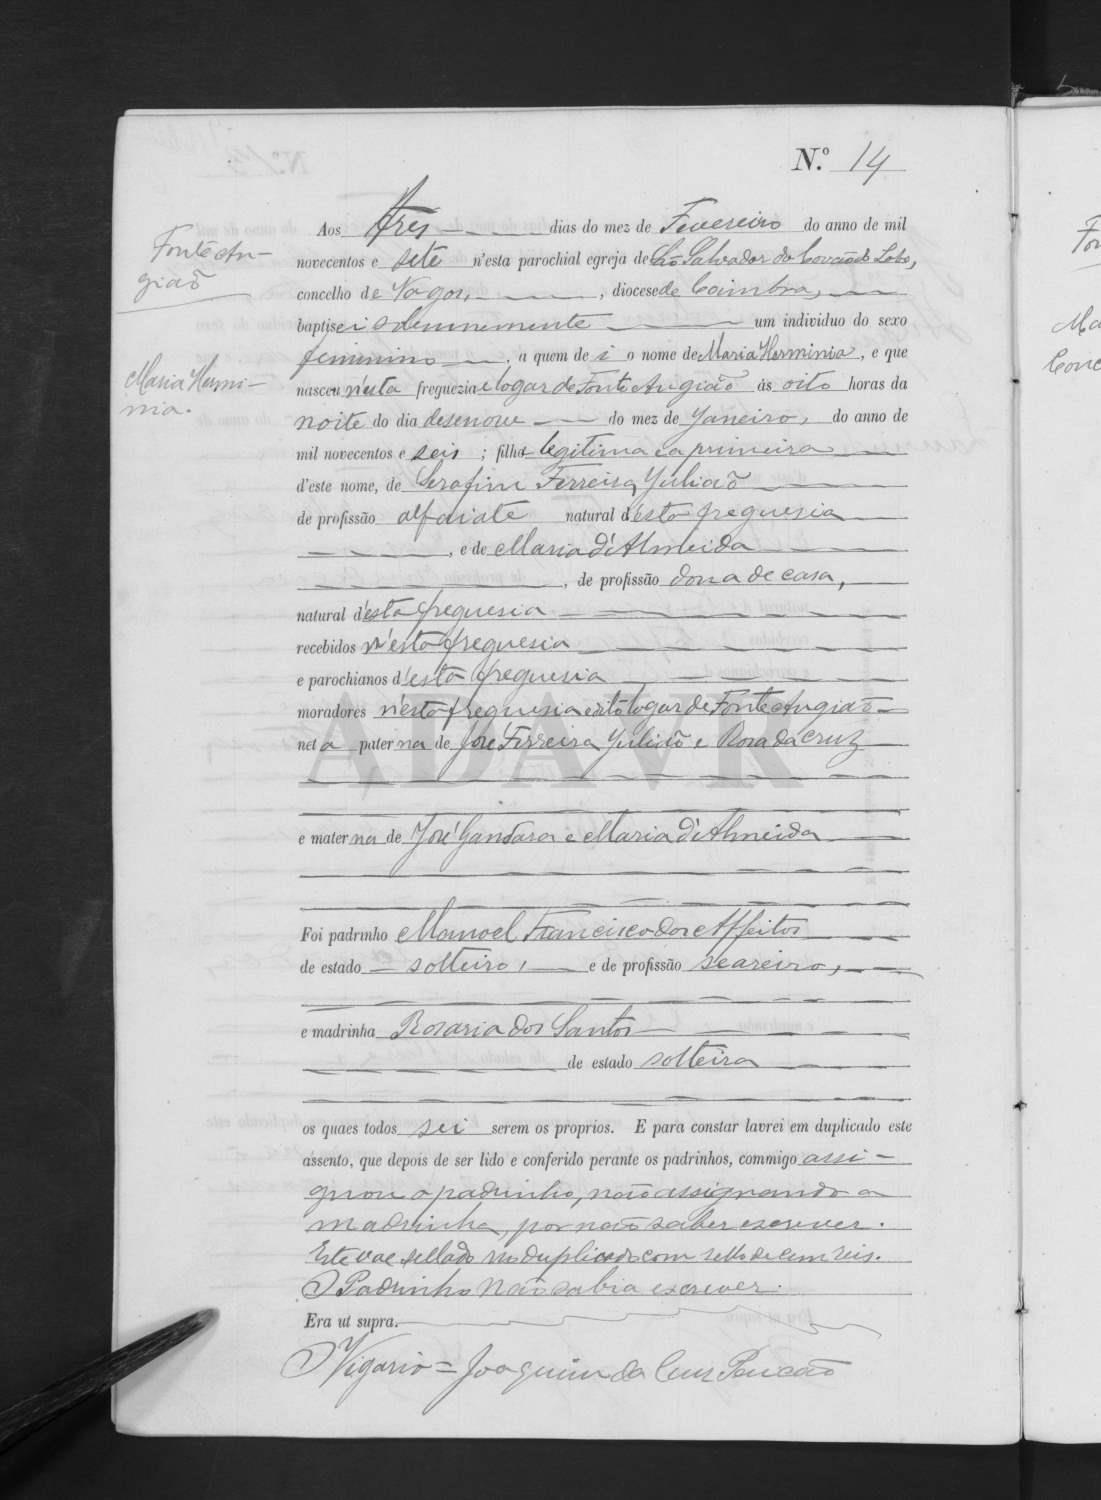 N.º 14
Fonte An-
gião
Aos tres dias do mez de Fevereiro do anno de mil
novecentos e sete n'esta parochial egreja de São Salvador do Covão do Lobo,
concelho de Vagos, , diocese de Coimbra,
baptisei solemnemente um individuo do sexo
feminino , a quem dei o nome de Maria Herminia, e que
Maria Hermi-
nia.
nasceu n'esta freguezia e logar de Fonte Angião ás oito horas da
noite do dia desenove do mez de Janeiro, do anno de
mil novecentos e seis ; filha legitima e a primeira
d'este nome, de Serafim Ferreira Julião
de profissão alfaiate natural d'esta freguesia
, e de Maria d'Almeida
, de profissão dona de casa,
natural d'esta freguesia
recebidos n'esta freguesia
e parochianos d'esta freguesia
moradores n'esta freguesia e dito logar de Fonte Angião
neta paterna de José Ferreira Julião e Rosa da Cruz
ADAVR
e materna de José Gandara e Maria d'Almeida
Foi padrinho Manoel Francisco dos Affeitos
de estado solteiro, e de profissão seareiro,
e madrinha Rosaria dos Santos
de estado solteira
os quaes todos sei serem os proprios. E para constar lavrei em duplicado este
assento, que depois de ser lido e conferido perante os padrinhos, commigo assi-
gnou o padrinho, não assignando a
madrinha, por não saber escrever.
Este vae sellado no duplicado com sello de cem reis.
O Padrinho não sabia escrever.
Era ut supra.
O Vigario = Joaquim da Cruz